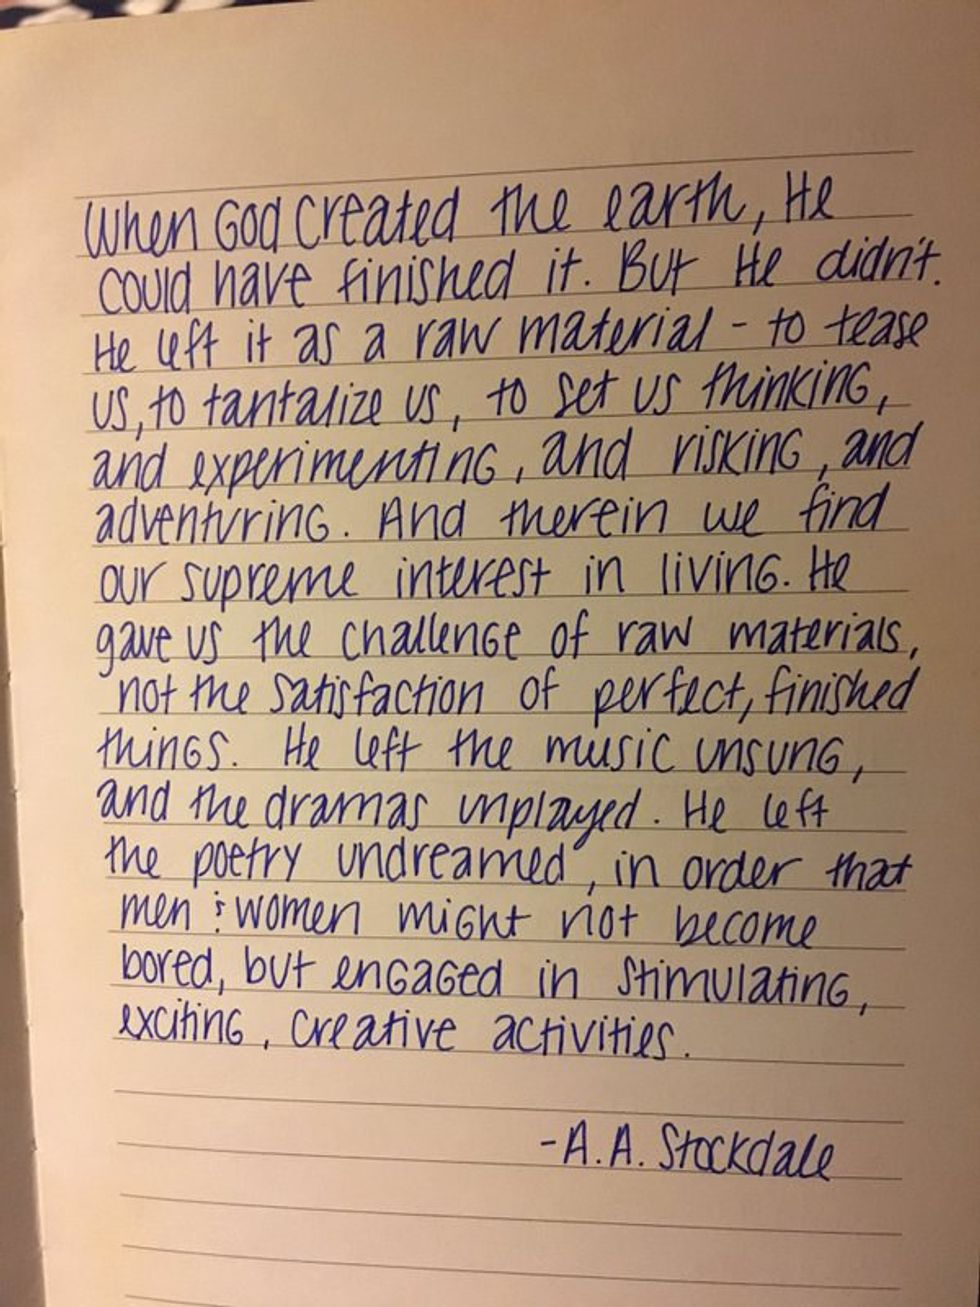 When God created the earth, He
could have finished it. But He didn't.
He left it as a raw material - to tease
us, to tantalize us, to set us thinking,
and experimenting, and risking, and
adventuring. And therein we find
our supreme interest in living. He
gave us the challenge of raw materials,
not the satisfaction of perfect, finished
things. He left the music unsung,
and the dramas unplayed. He left
the poetry undreamed, in order that
men & women might not become
bored, but engaged in stimulating,
exciting, creative activities.
-A.A. Stockdale